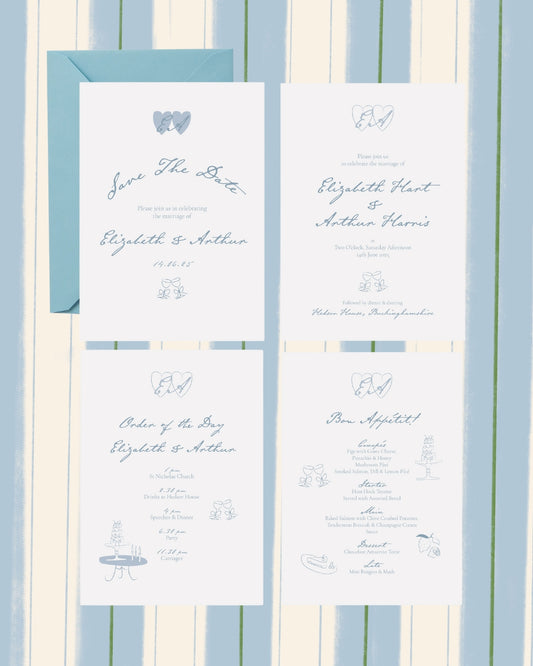 E A
Save The Date
Please join us in celebrating
the marriage of
Elizabeth & Arthur
14.06.25
E A
Please join us
to celebrate the marriage of
Elizabeth Hart
&
Arthur Harris
at
Two O'clock, Saturday Afternoon
14th June 2025
Followed by dinner & dancing
Hedsor House, Buckinghamshire
E A
Order of the Day
Elizabeth & Arthur
1 pm
St Nicholas Church
2.30 pm
Drinks at Hedsor House
4 pm
Speeches & Dinner
6.30 pm
Party
11.30 pm
Carriages
E A
Bon Appétit!
Canapés
Figs with Goats Cheese
Pistachio & Honey
Mushroom Pâté
Smoked Salmon, Dill & Lemon Pâté
Starter
Ham Hock Terrine
Served with Assorted Bread
Main
Baked Salmon with Chive Crushed Potatoes
Tenderstem Broccoli & Champagne Cream
Sauce
Dessert
Chocolate Amaretto Torte
Late
Mini Burgers & Mash